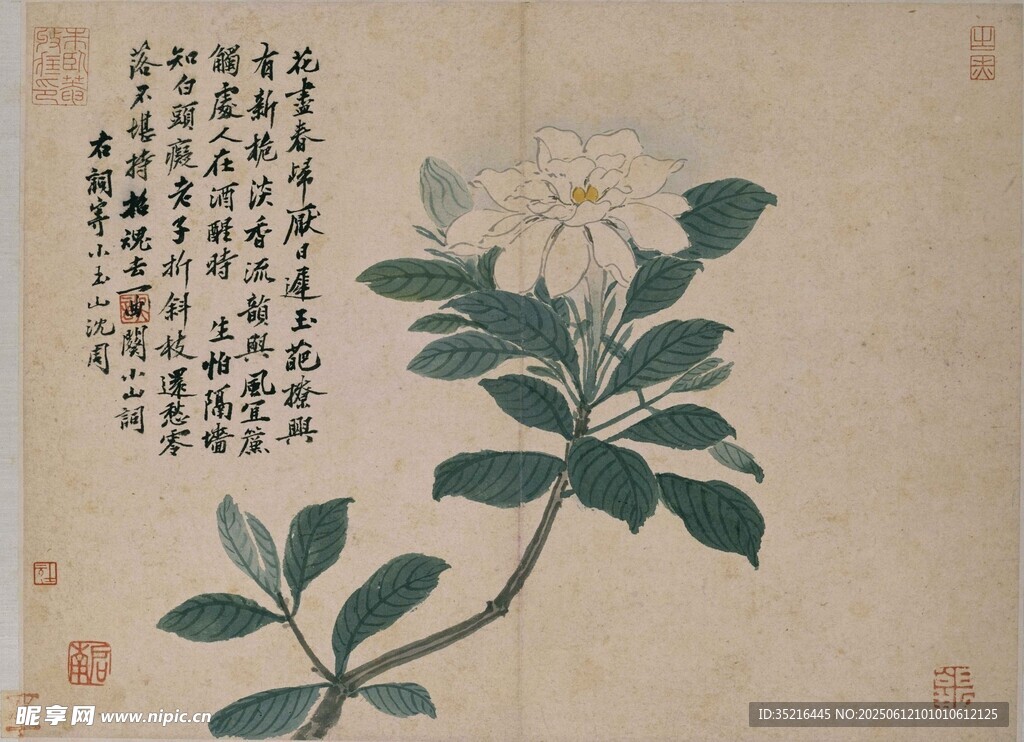 花盡春歸厭日遲玉葩撩興
有新梔淡香流韻與風宜簾
觸處人在酒醒時 生怕隔墻
知白頭癡老子折斜枝還愁零
落不堪持招魂去一曲閱小山詞
右詞寄小玉山沈周
啟南
昵享网 www.nipic.cn
ID:35216445 NO:20250612101010612125